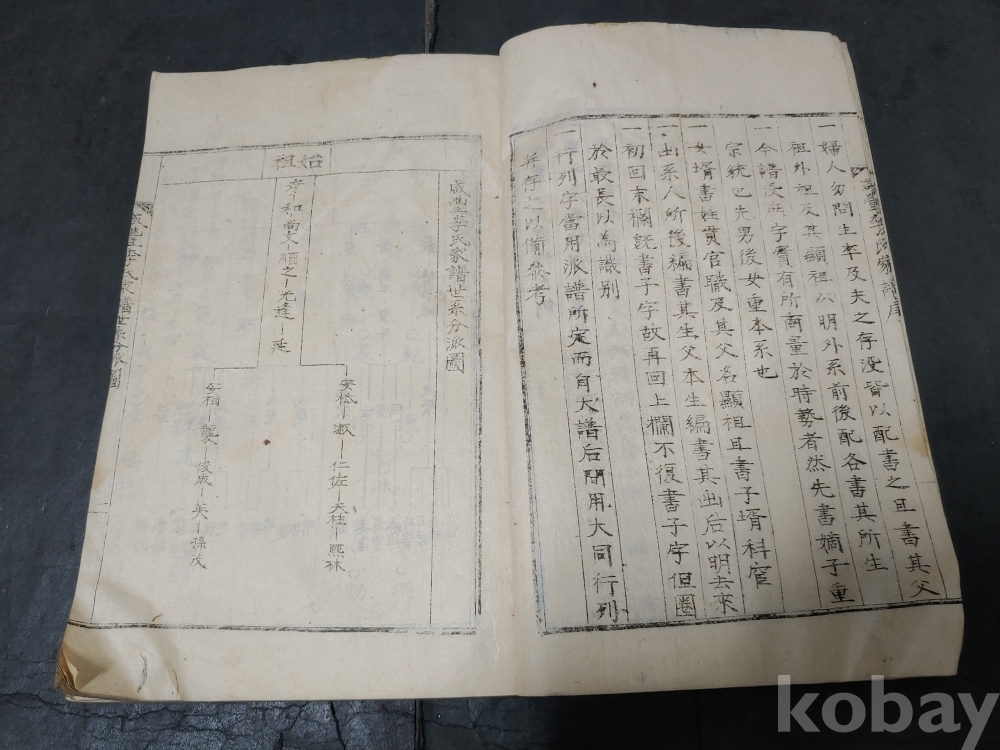 一婦人勿問上本及夫之存沒皆以配書之且書其父
祖外祖及其顯祖以明外系前後配各書其所生
一今譜沒庶字實有所商量於時勢者然先書嫡子重
宗統也先男後女重本系也
一女壻書姓貫官職及其父名顯祖且書子壻科宦
一出系人所後編書其生父本生編書其出后以明去來
一初回末欄旣書子字故再回上欄不復書子字但圈
於最長以為識別
一行列字當用派譜所定而自大譜后間用大同行列
并存之以備叅考
咸豐李氏家譜世系分派圖
始祖
和
尚文
順之
允逹
安松
淑
仁佐
天桂
熙林
安相
襲
英
孫茂
咸豐李氏家譜世系分派圖
kobay